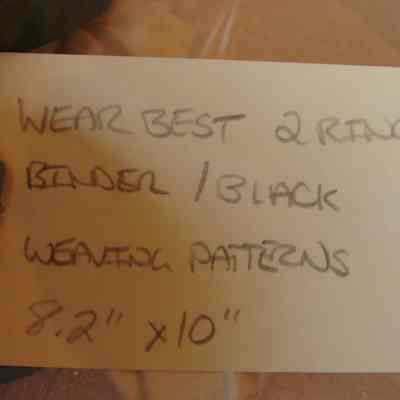 WEAR BEST 2 RING
BINDER / BLACK
WEAVING PATTERNS
8.2" x 10"